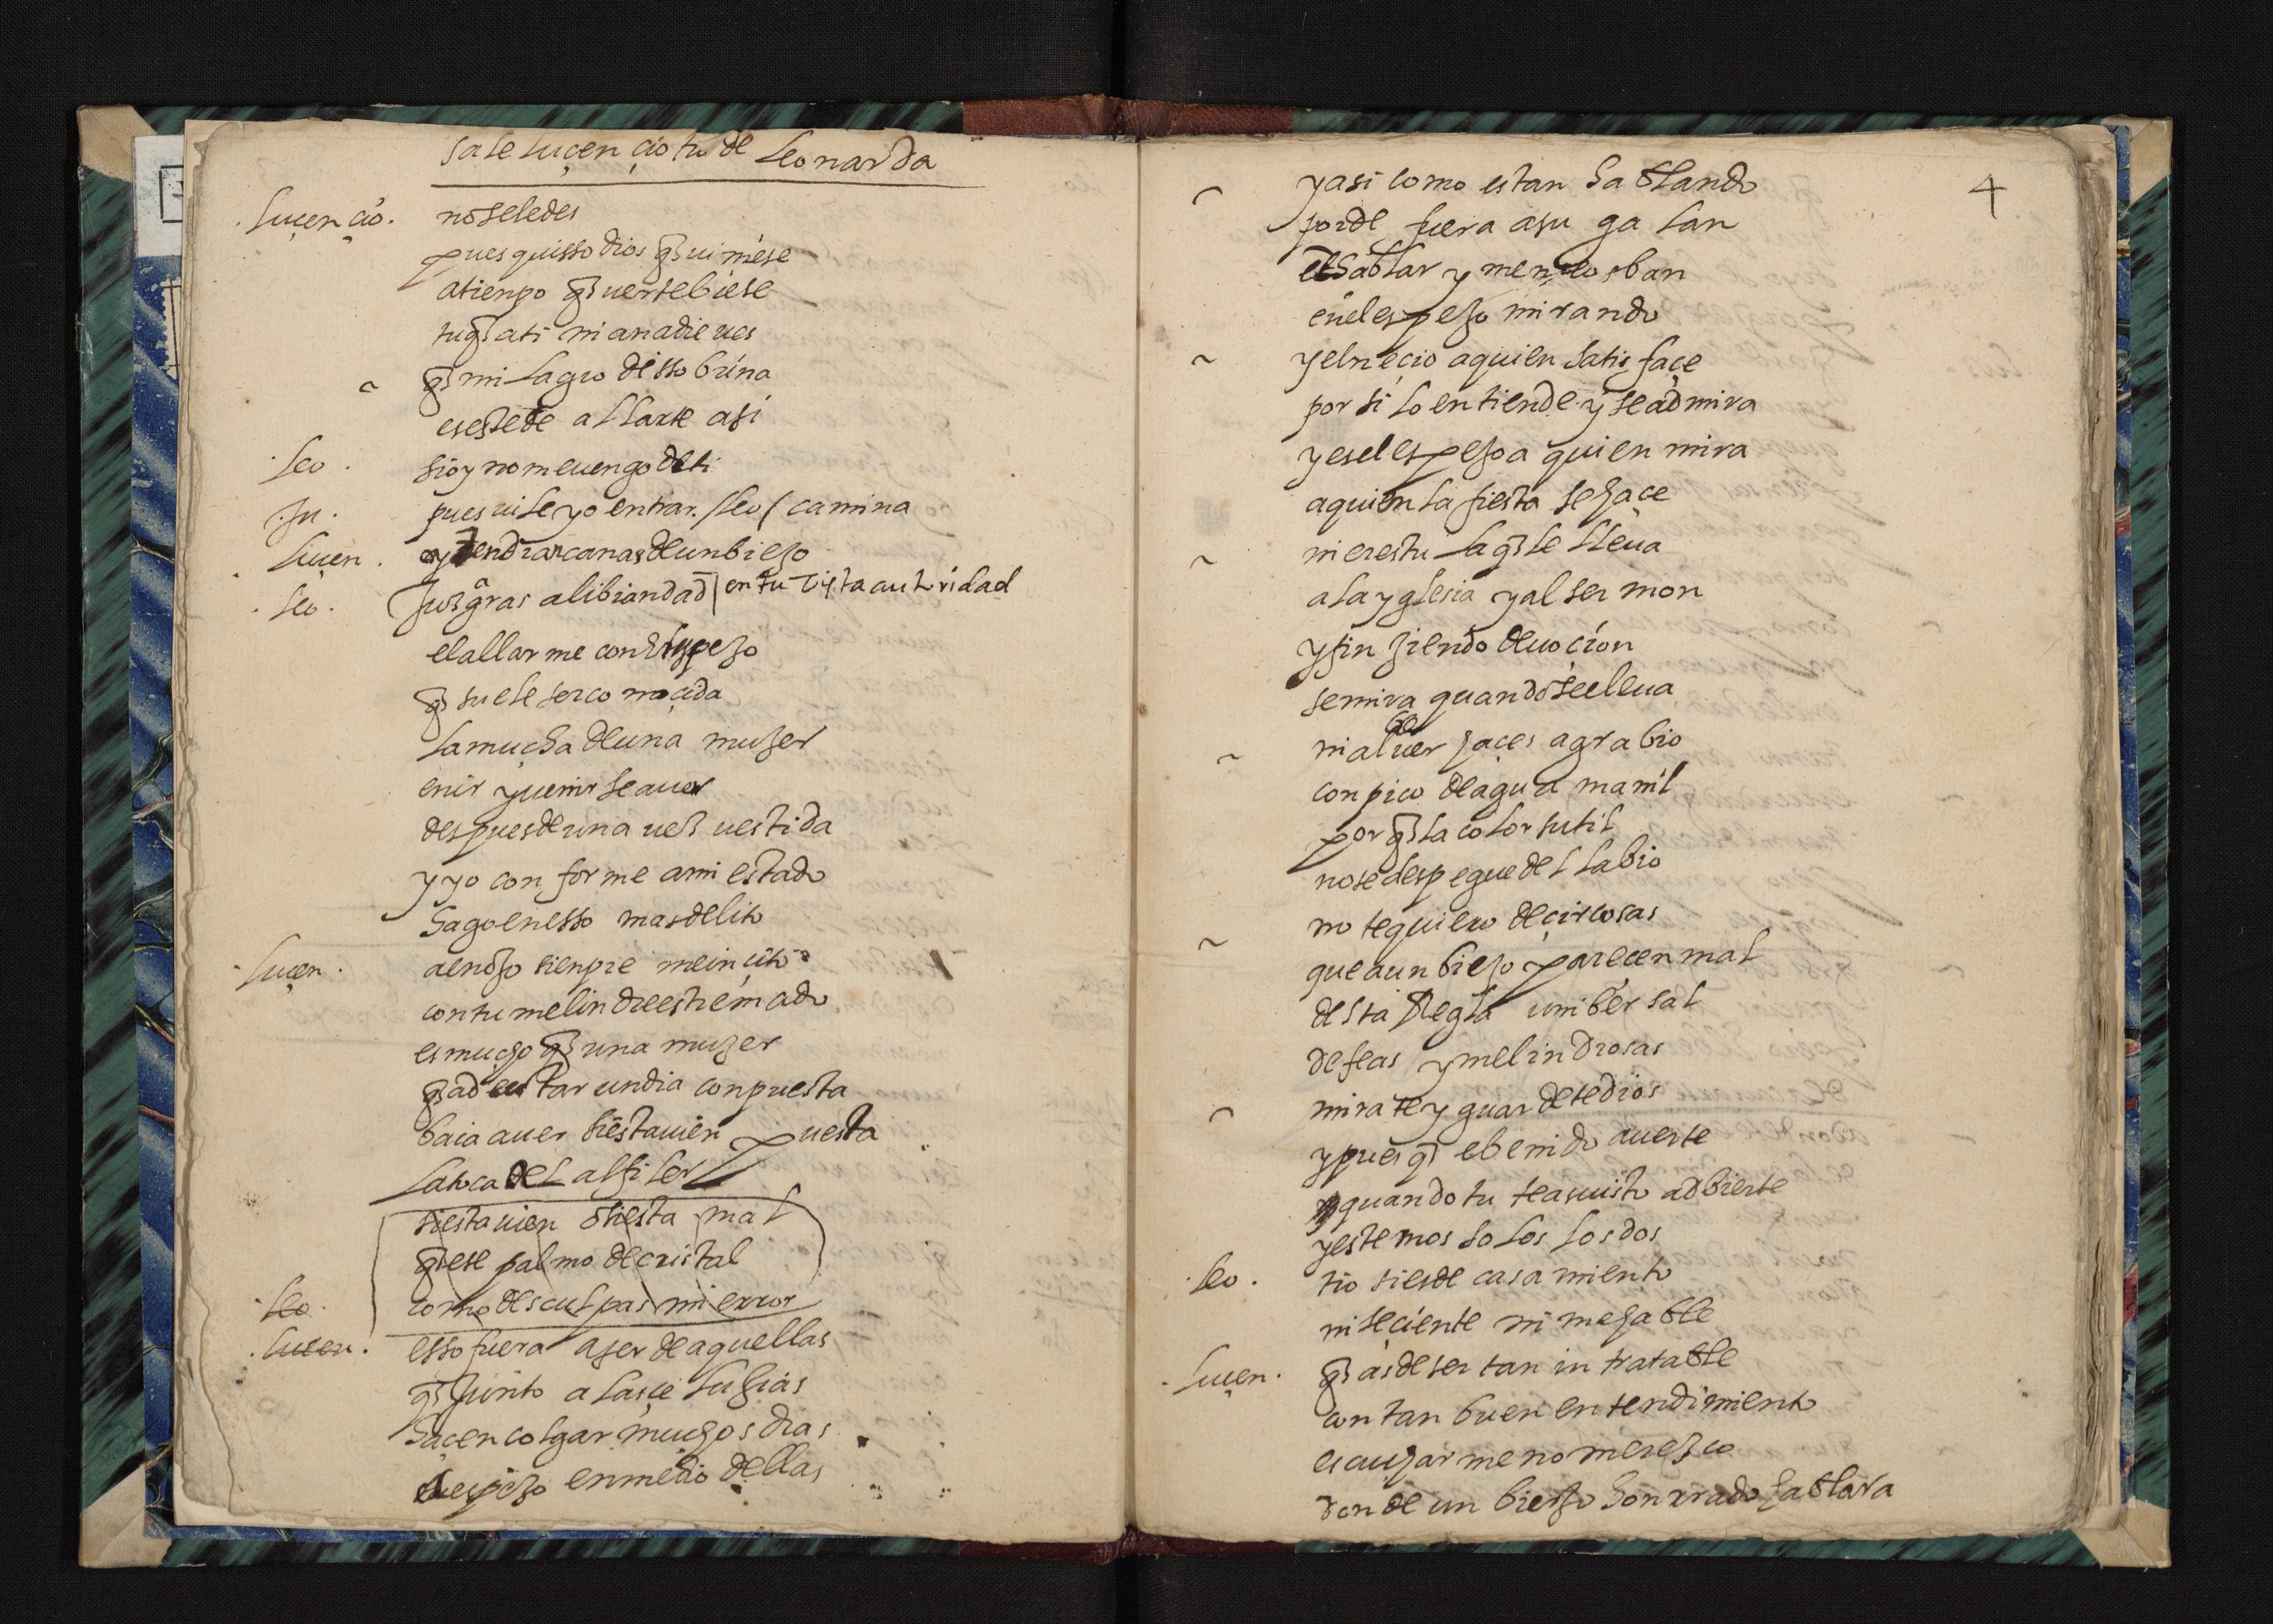 sale luçençio tio de Leonarda
luçençio. no se le des
pues quisso dios q̃ uiniese
a tienpo q̃ uerte biese
tu q̃ a ti ni a nadie ues
q̃ milagro de ssobrina
es este de allarte asi
leo. si oy no me uengo de ti
Ju. pues uile yo entrar. / leo / camina
luçen. oy tendra canas de un biejo
leo. Juzgaras a libiandad / en tu vista autoridad
el allarme con espejo
q̃ suele ser conoçida
la mucha de una mujer
en ir y uenirse a uer
despues de una uez uestida
y yo conforme a mi estado
hago en esso mas delito
luçen. a enojo sienpre me inçito
con tu melindre estremado
es mucho q̃ una mujer
q̃ a de estar un dia conpuesta
baia a uer si esta uien puesta
la toca del alfiler
si esta uien o si esta mal
q̃ ese palmo de cristal
leo. como desculpas mi error
luçen. esso fuera a ser de aquellas
q̃ Junto a las çelugias
haçen colgar muchos dias
espejo en medio dellas
4
y asi como estan hablando
por de fuera a su galan
el hablar y meneos ban
en el espejo mirando
y el neçio a quien satisfaçe
por si lo entiende y se admira
y es el espejo a quien mira
a quien la fiesta se haçe
ni eres tu la q̃ le lleua
a la yglesia y al sermon
y finjiendo deuoçion
se mira quando se eleua
ni al beber haçes agrabio
con pico de agua manil
por q̃ la color sutil
no se despegue del labio
no te quiero deçir cosas
que a un biejo parecen mal
desta Regla unibersal
de feas y melindrosas
mirate y guardete dios
y pues q̃ e benido a uerte
quando tu te as uisto adbierte
y estemos solos los dos
leo. tio si es de casamiento
ni se çiente ni me hable
luçen. q̃ as de ser tan intratable
con tan buen entendimiento
escucharme no merezco
donde un biejo honrrado hablara